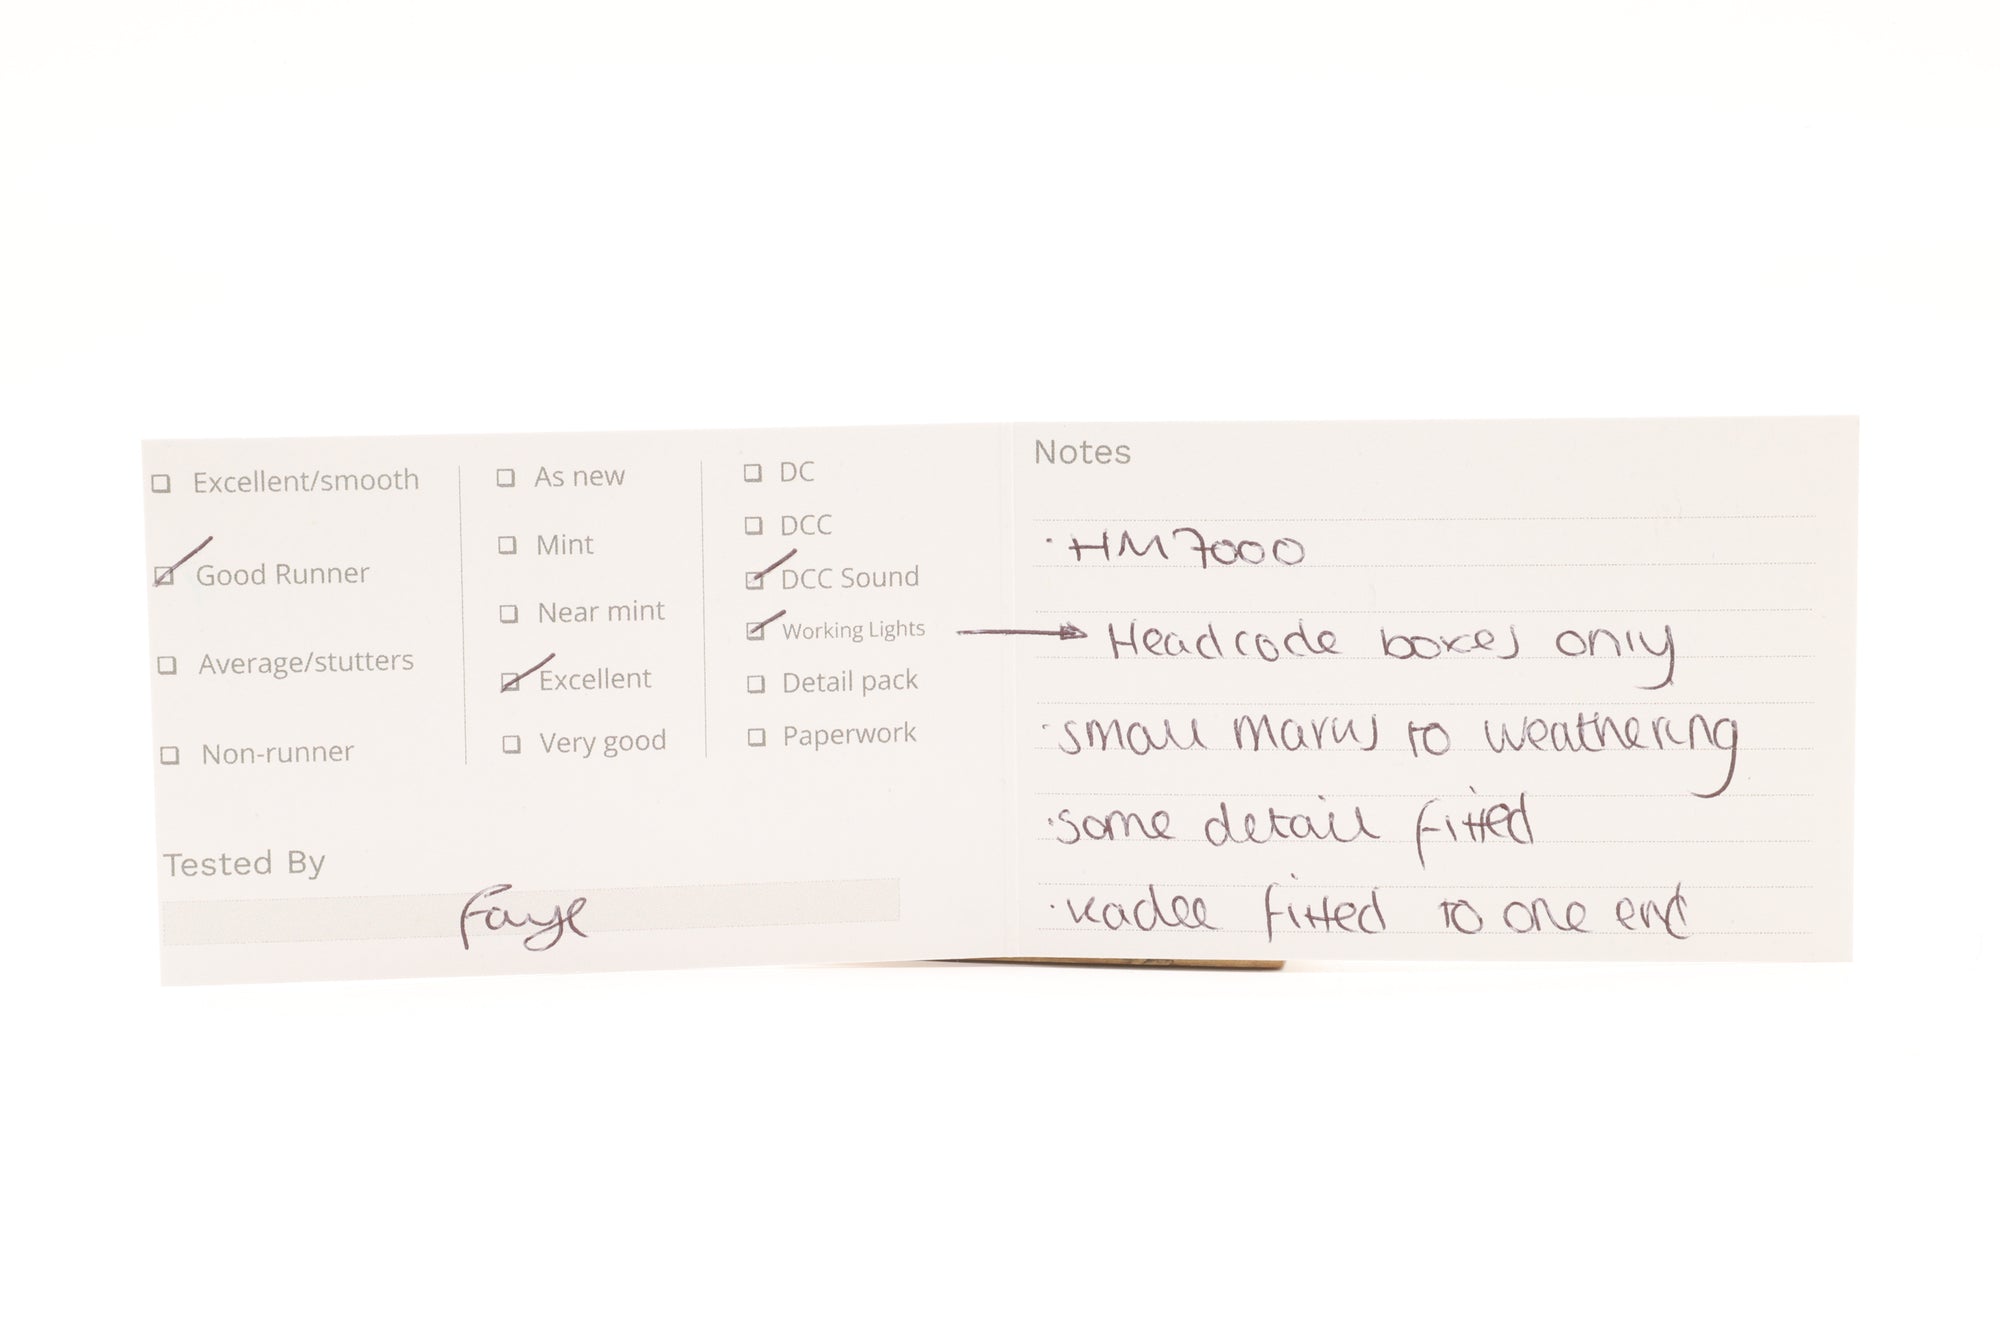 Excellent/smooth
Good Runner
Average/stutters
Non-runner
As new
Mint
Near mint
Excellent
Very good
DC
DCC
DCC Sound
Working Lights
Detail pack
Paperwork
Tested By
Faye
Notes
· HM7000
Headcode boxes only
· small marks to weathering
· some detail fitted
· kadee fitted to one end